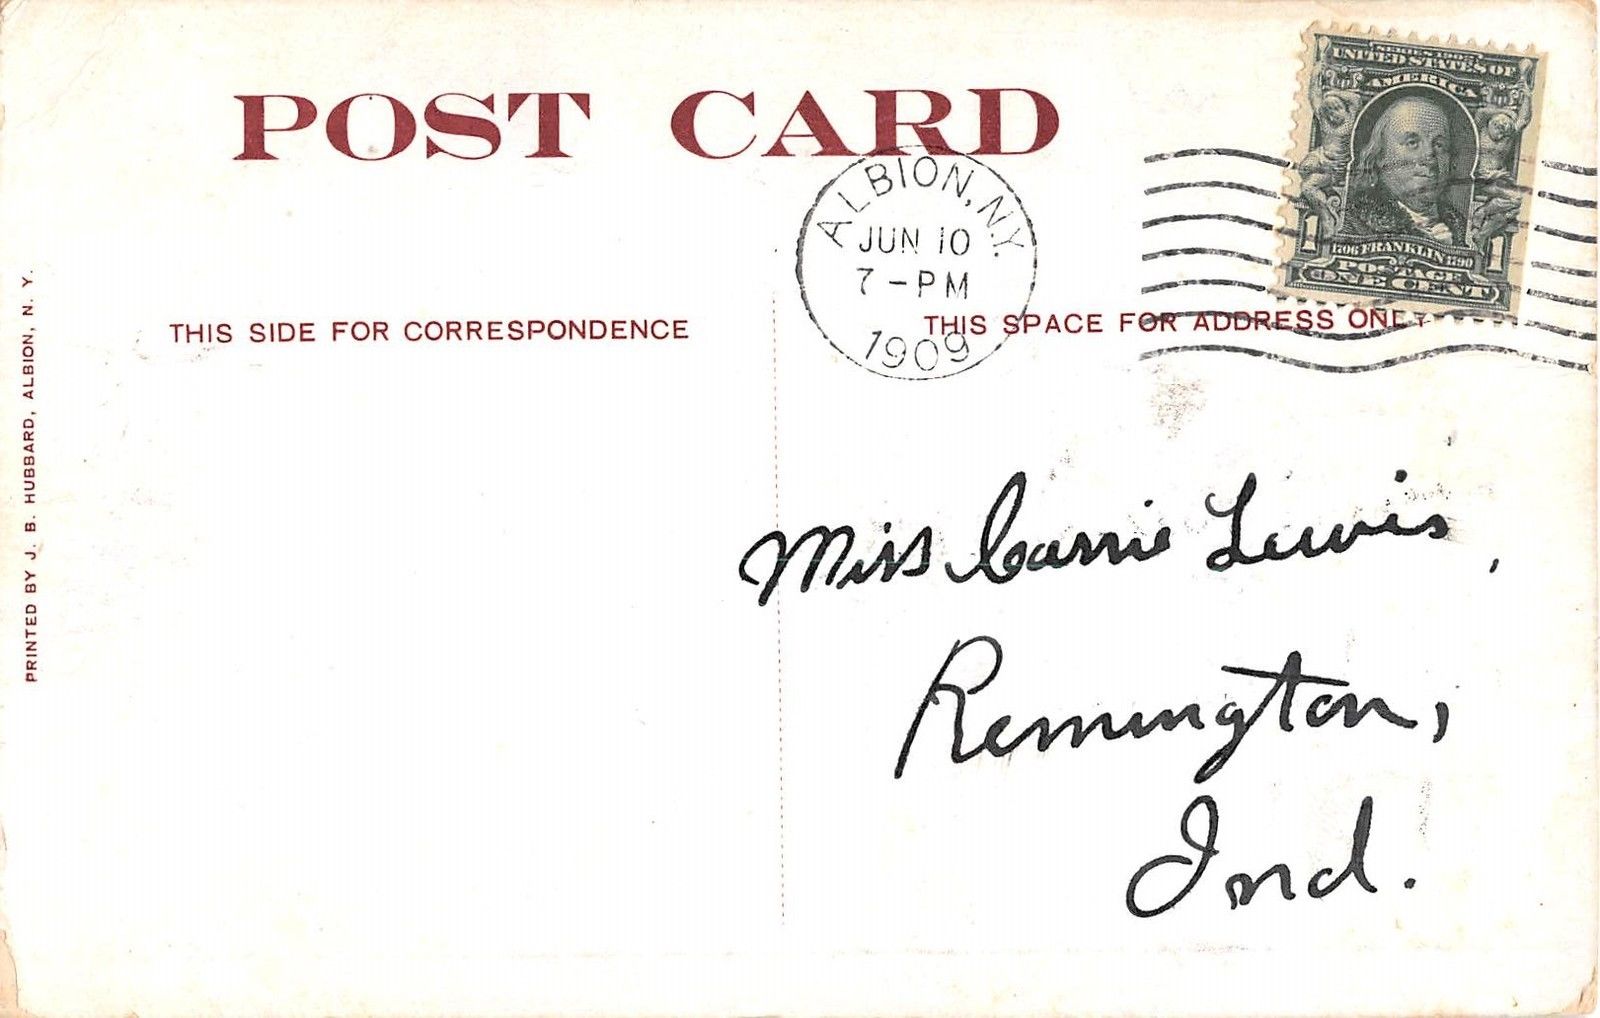 POST CARD
SERIES 1902
UNITED STATES OF
AMERICA
1 1
1706 FRANKLIN 1790
POSTAGE
ONE CENT
ALBION, N.Y.
JUN 10
7-PM
1909
THIS SIDE FOR CORRESPONDENCE
THIS SPACE FOR ADDRESS ONLY
PRINTED BY J. B. HUBBARD, ALBION, N. Y.
Miss Carrie Lewis,
Remington,
Ind.